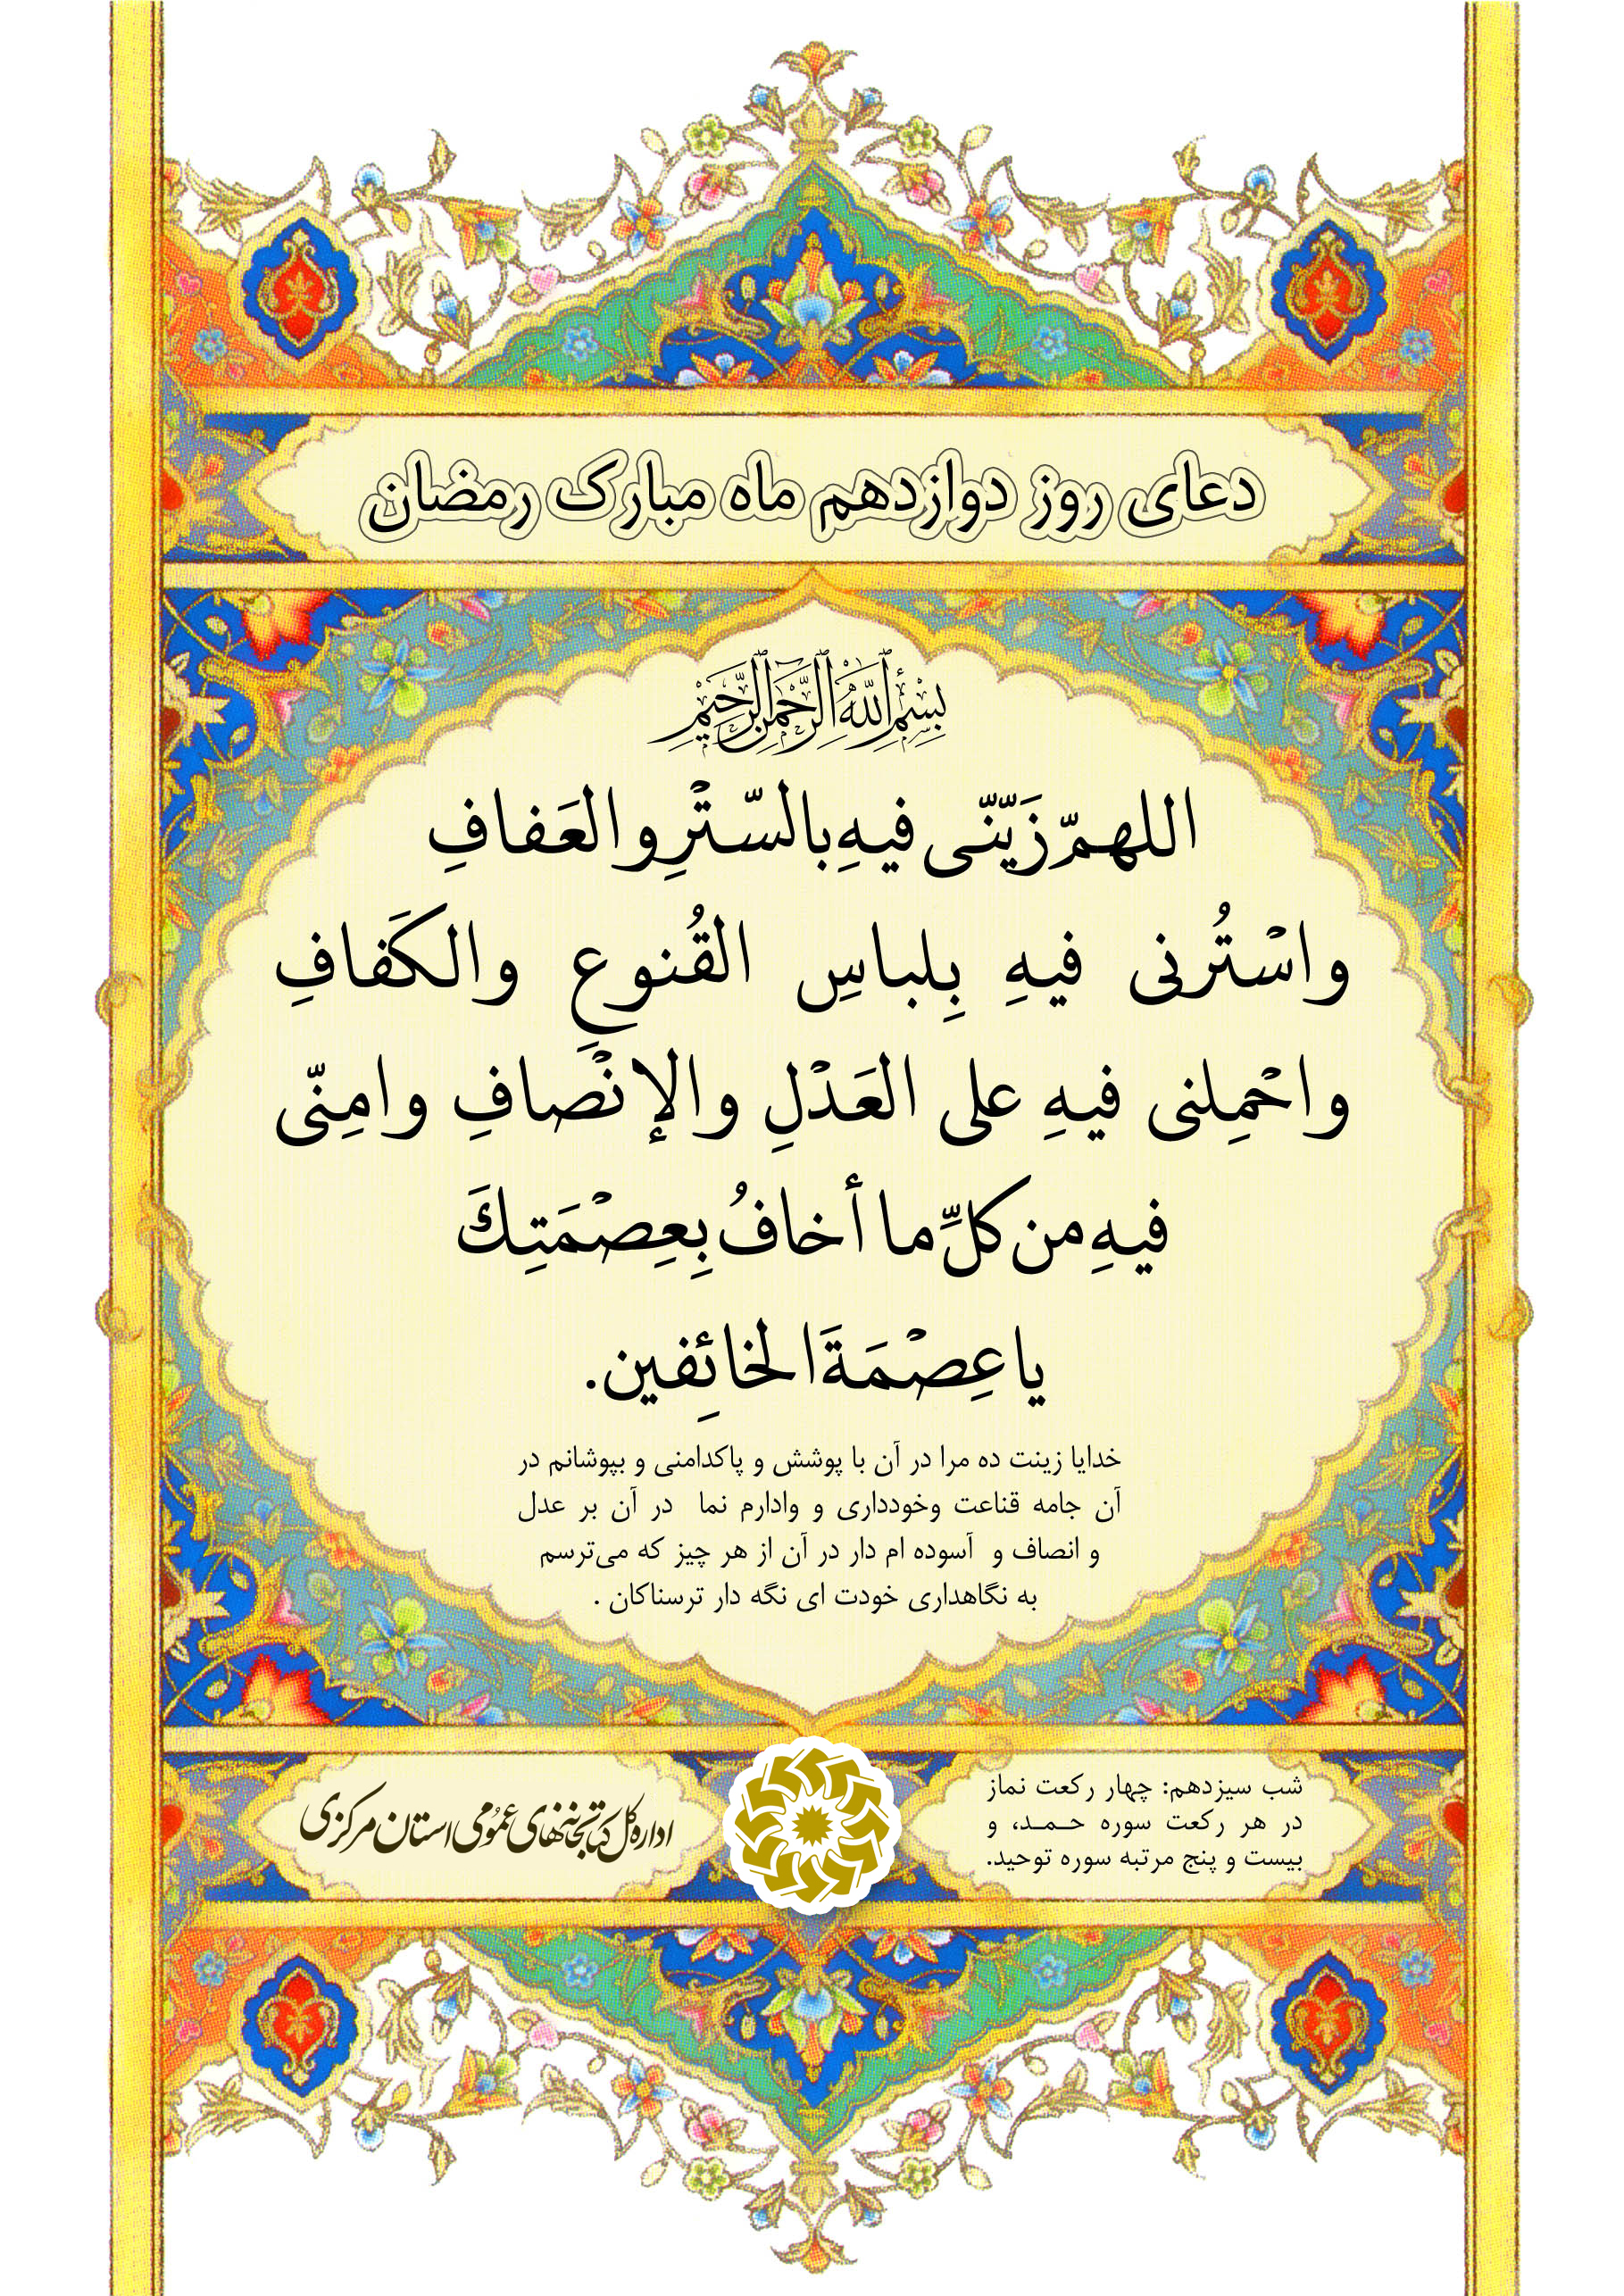 دعای روز دوازدهم ماه مبارک رمضان
بِسْمِ اللَّهِ الرَّحْمَنِ الرَّحِيمِ
اللهمّ زَيّنّی فيهِ بالسّتْرِ والعَفافِ
واسْتُرنی فيهِ بِلباسِ القُنوعِ والكَفافِ
واحْمِلنی فيهِ علی العَدْلِ والإنْصافِ وامِنّی
فيهِ من كلِّ ما أخافُ بِعِصْمَتِكَ
يا عِصْمَةَ الخائِفين.
خدایا زینت ده مرا در آن با پوشش و پاکدامنی و بپوشانم در
آن جامه قناعت وخودداری و وادارم نما در آن بر عدل
و انصاف و آسوده ام دار در آن از هر چیز که می‌ترسم
به نگاهداری خودت ای نگه دار ترسناکان .
شب سیزدهم: چهار رکعت نماز
در هر رکعت سوره حـمـد، و
بیست و پنج مرتبه سوره توحید.
اداره کل کتابخانه‌های عمُومی استان مرکزی